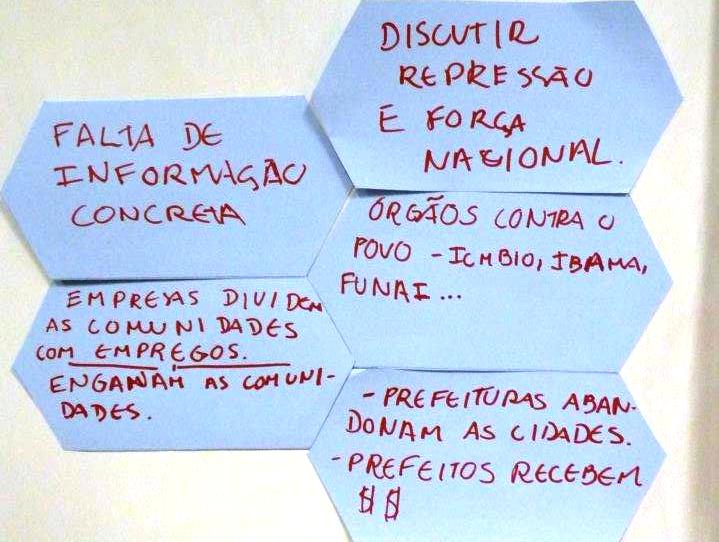 DISCUTIR
REPRESSÃO
E FORÇA
NACIONAL.
FALTA DE
INFORMAÇÃO
CONCRETA
ÓRGÃOS CONTRA O
POVO - ICMBIO, IBAMA,
FUNAI...
EMPRESAS DIVIDEM
AS COMUNIDADES
COM EMPREGOS.
ENGANAM AS COMUNI-
DADES.
- PREFEITURAS ABAN-
DONAM AS CIDADES.
- PREFEITOS RECEBEM
$ $